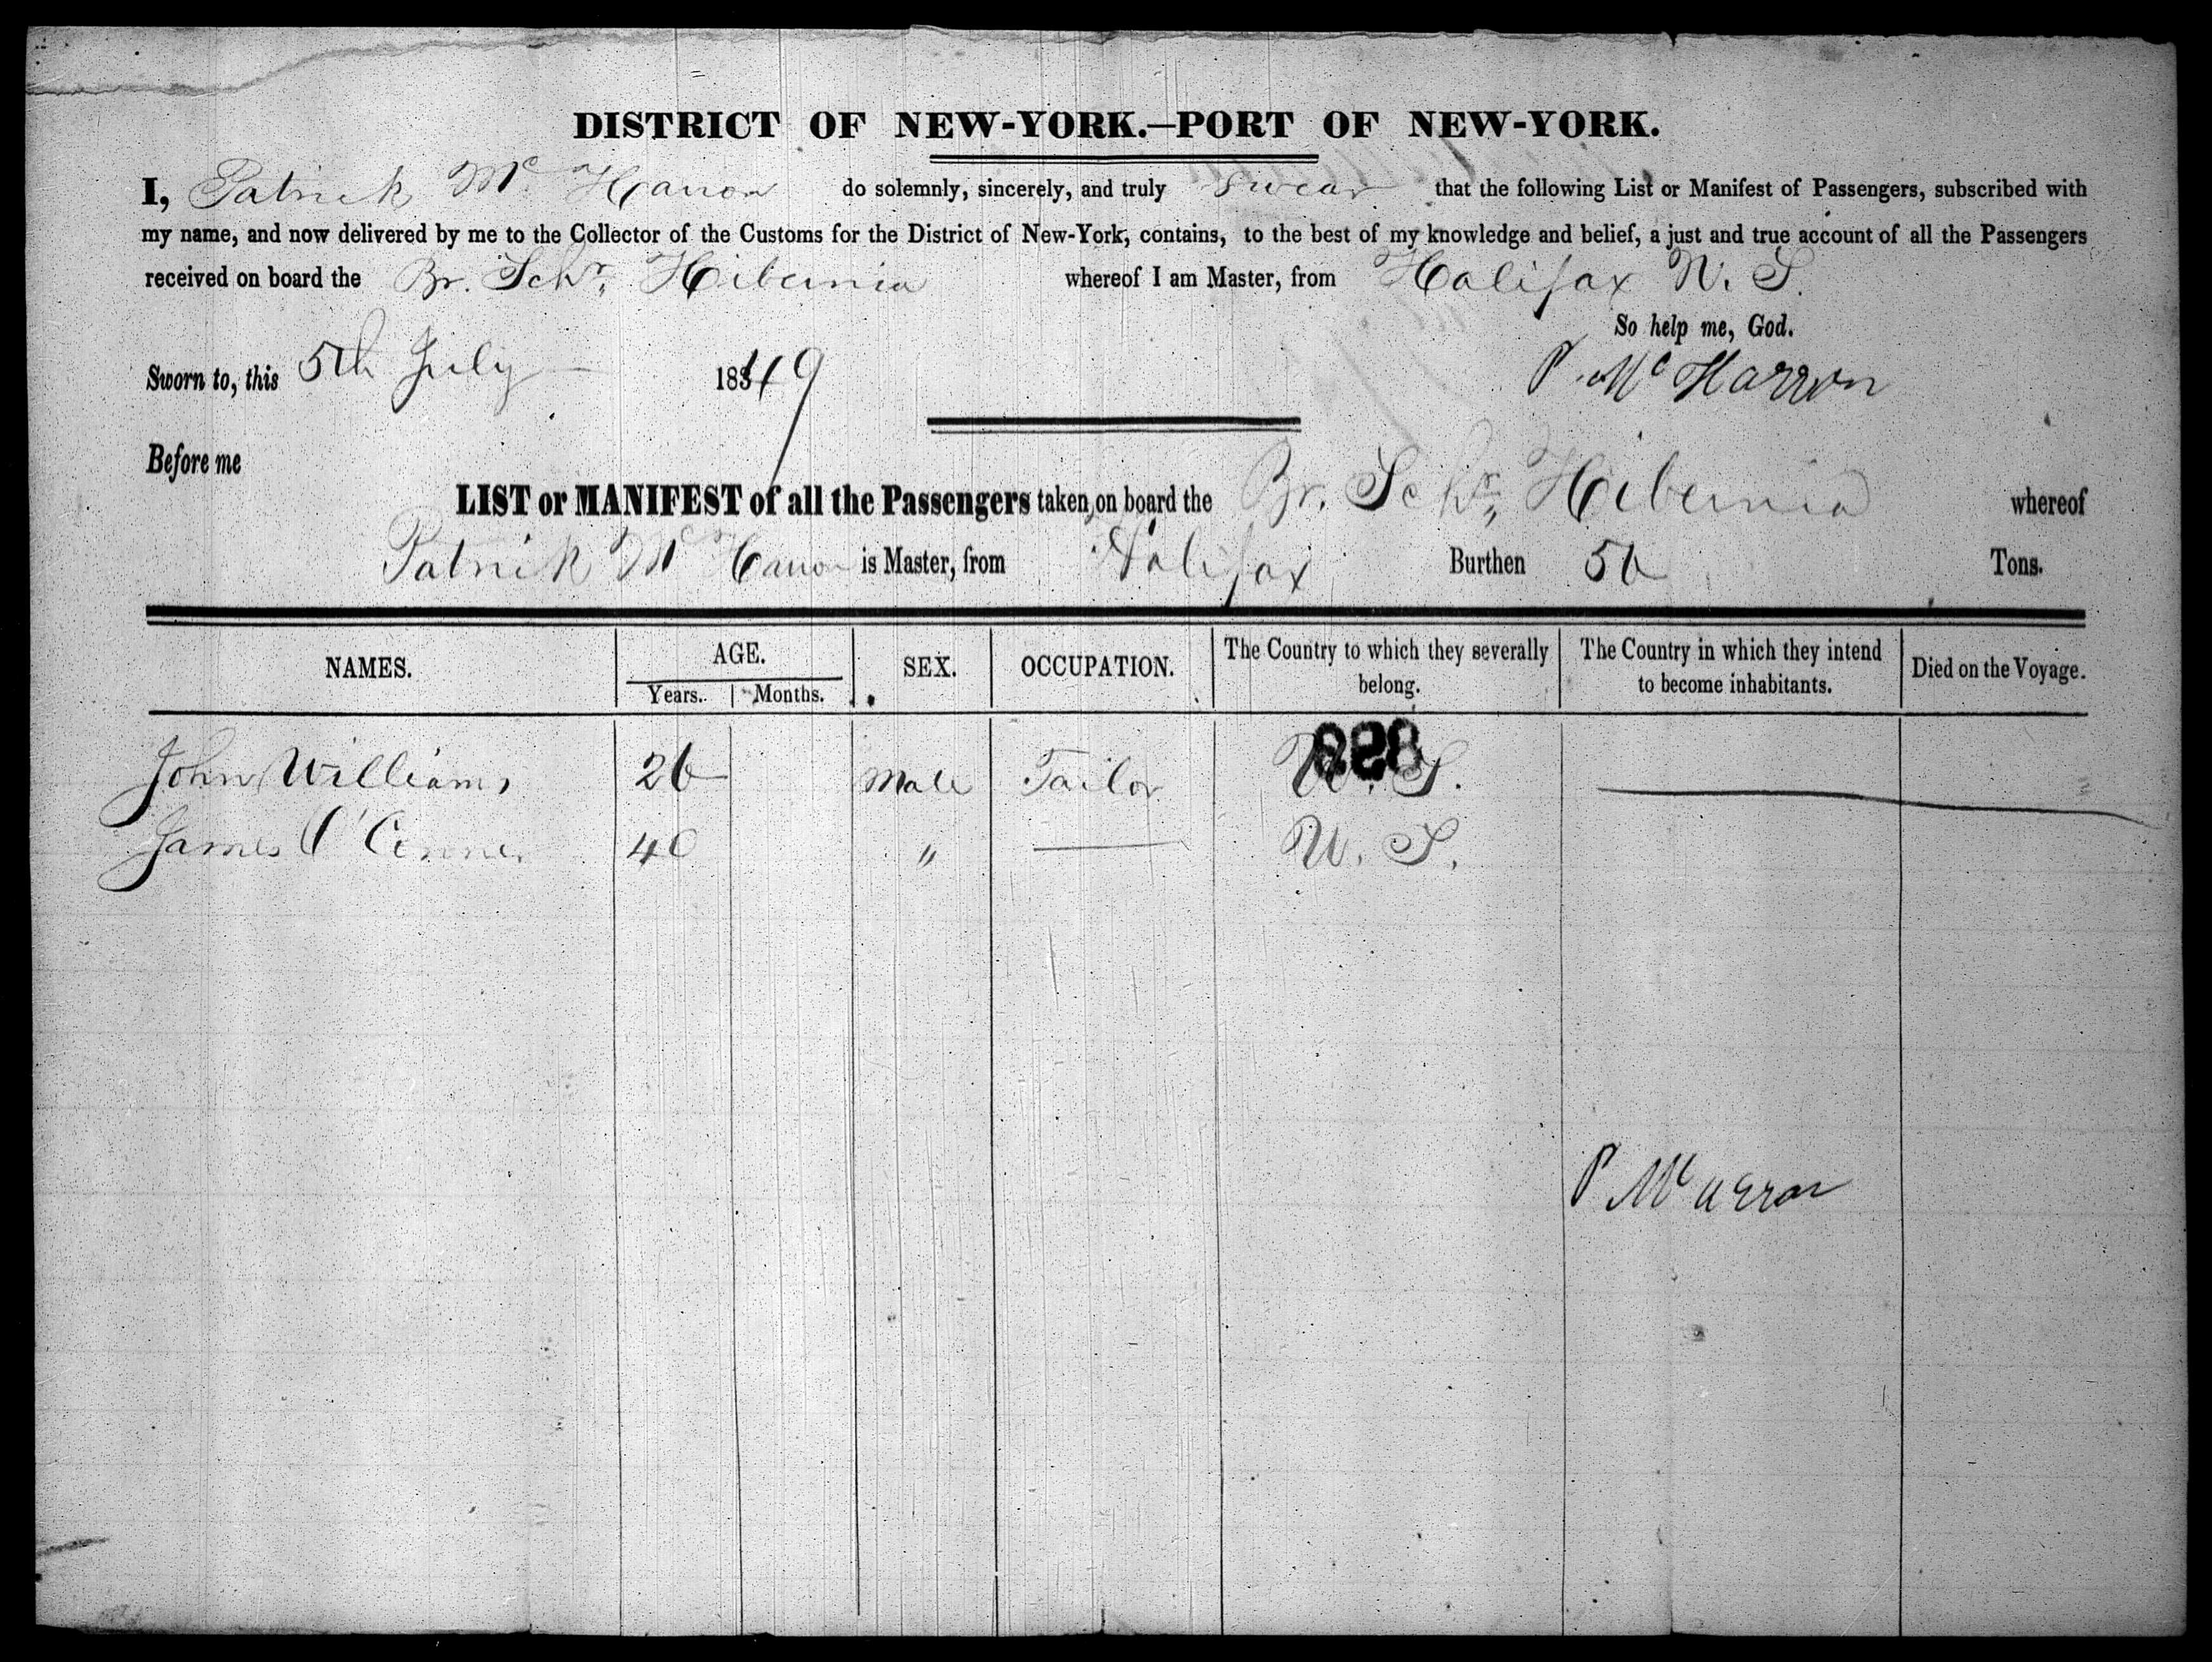 DISTRICT OF NEW-YORK.—PORT OF NEW-YORK.
I, Patrick Mc Harron do solemnly, sincerely, and truly swear that the following List or Manifest of Passengers, subscribed with
my name, and now delivered by me to the Collector of the Customs for the District of New-York, contains, to the best of my knowledge and belief, a just and true account of all the Passengers
received on board the Br. Schr. Hibernia whereof I am Master, from Halifax N. S.
So help me, God.
Sworn to, this 5th July 1849 P. Mc Harron
Before me
LIST or MANIFEST of all the Passengers taken on board the Br. Schr. Hibernia whereof
Patrick Mc Harron is Master, from Halifax Burthen 56 Tons.
NAMES. AGE. SEX. OCCUPATION. The Country to which they severally belong. The Country in which they intend to become inhabitants. Died on the Voyage.
Years. Months.
John Williams 26 Male Tailor U. S.
James O'Conner 40 " U. S.
P Mc